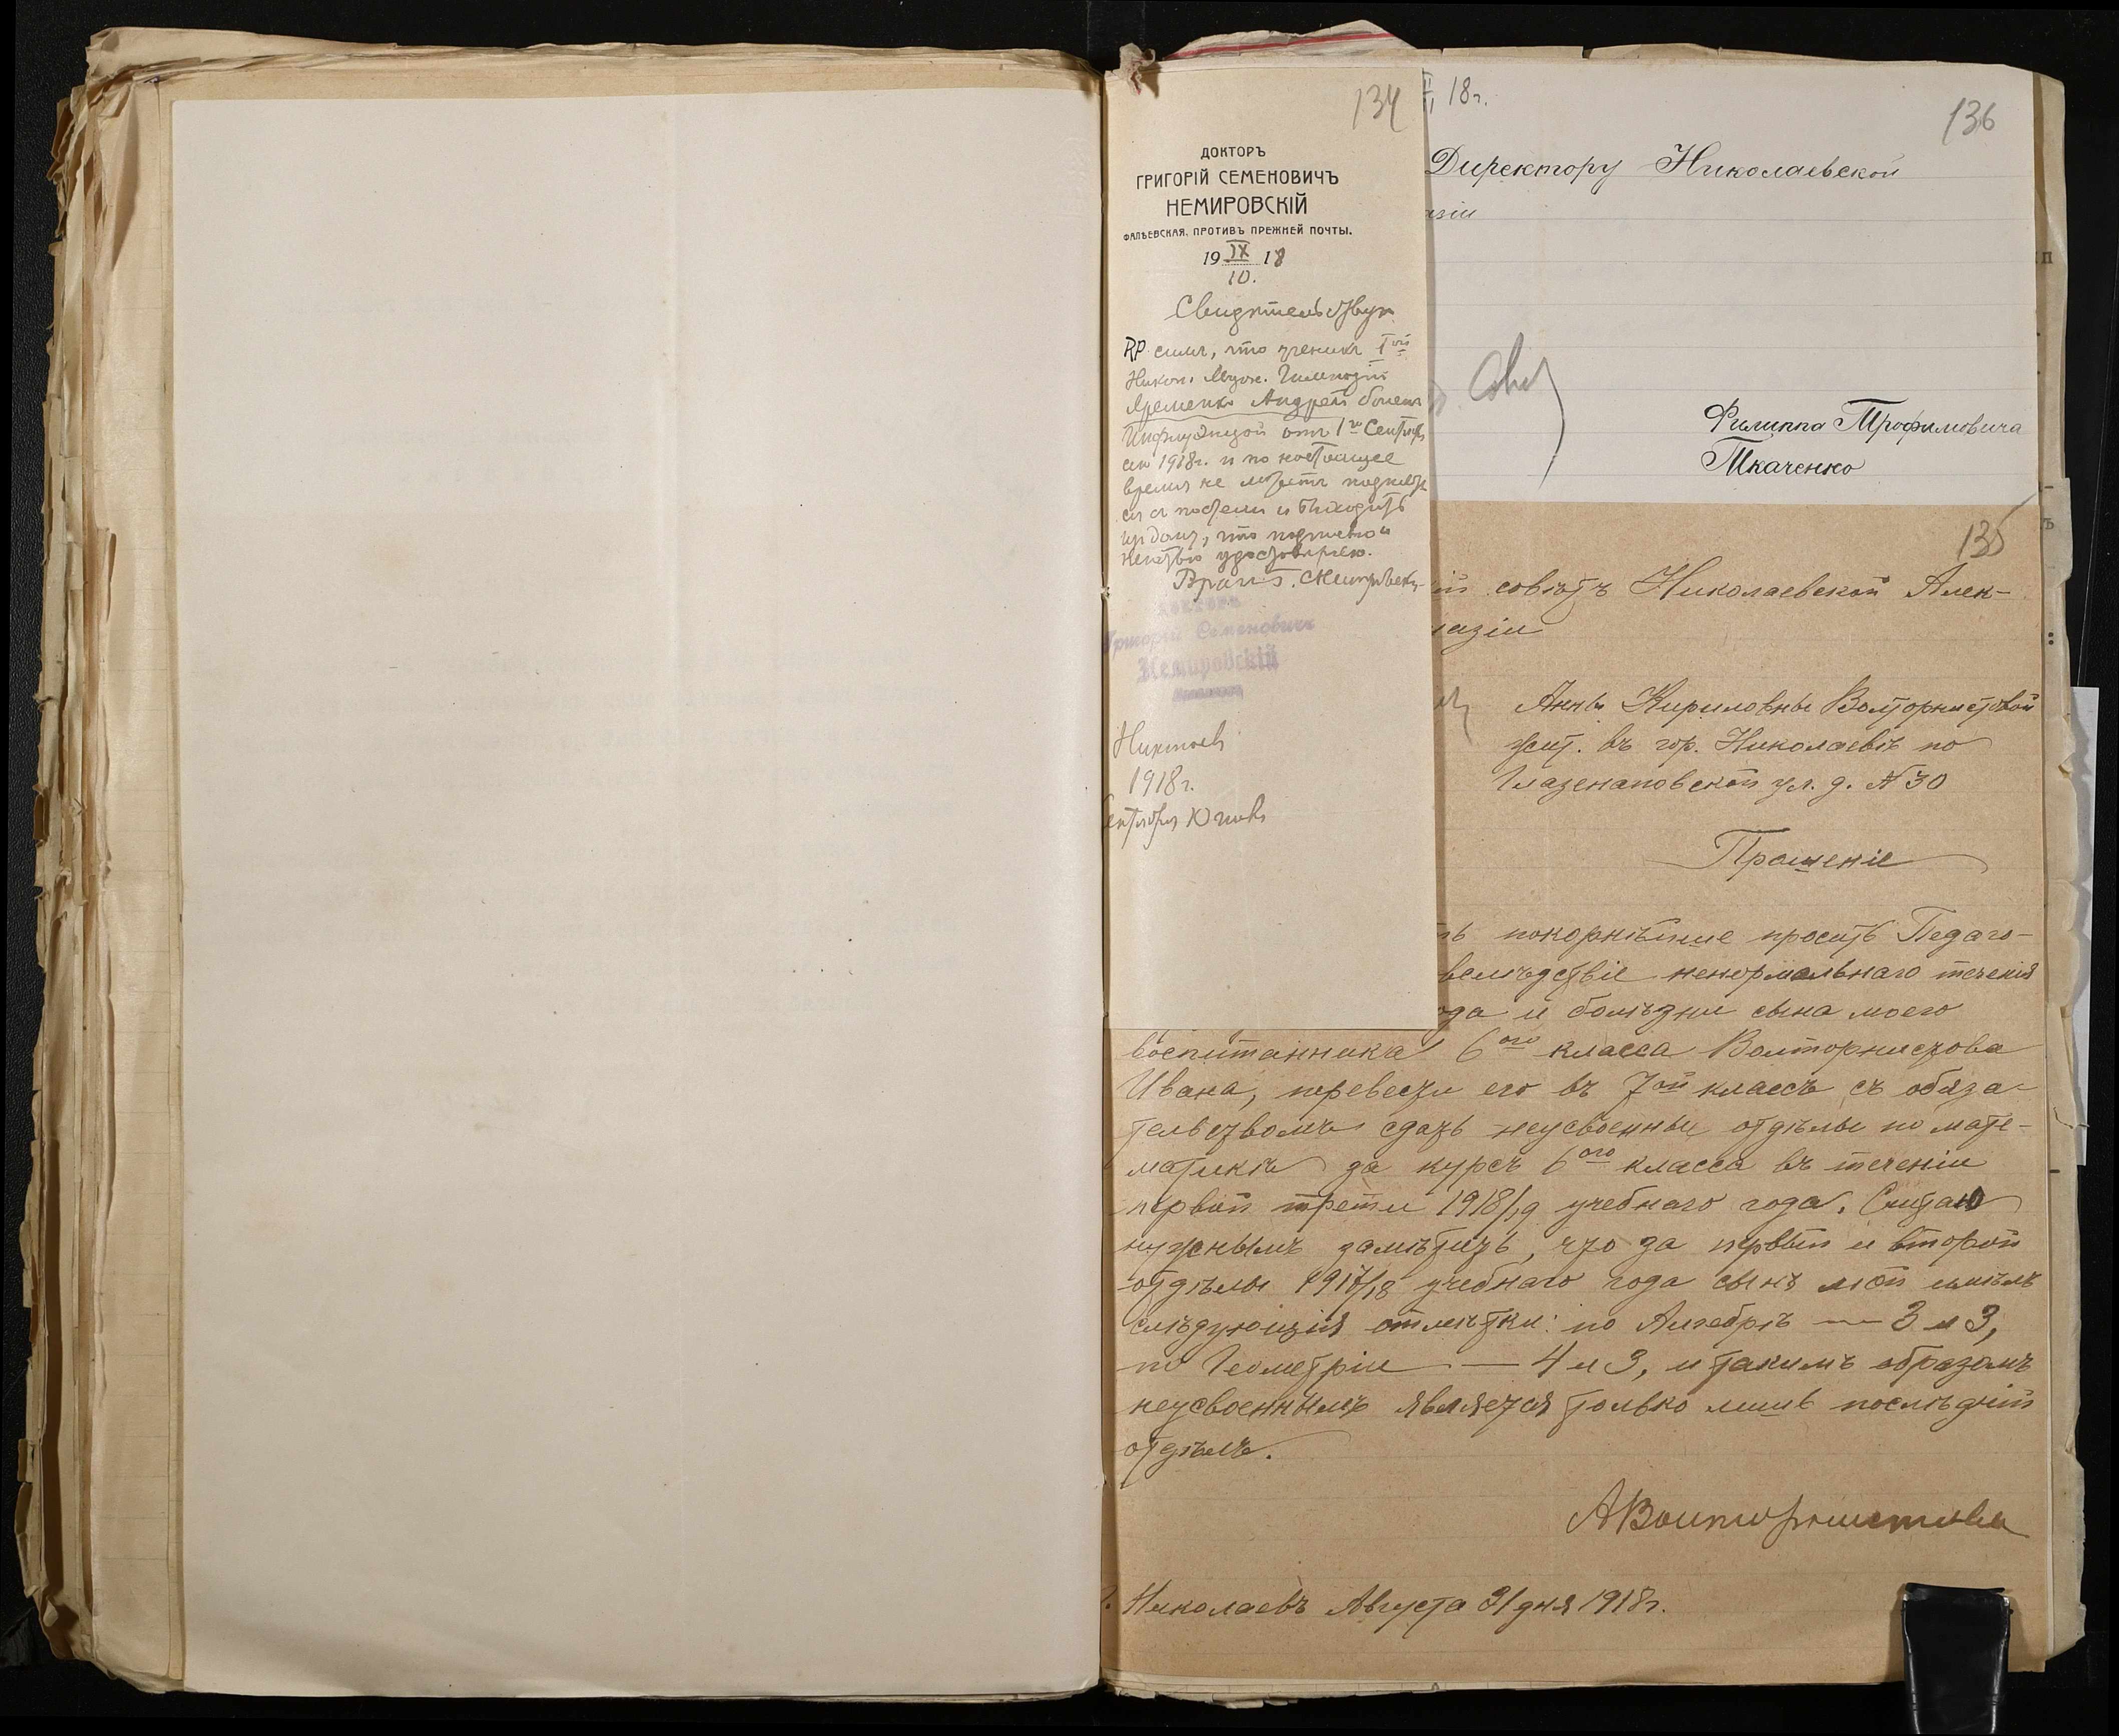 134
ДОКТОРЪ
ГРИГОРІЙ СЕМЕНОВИЧЪ
НЕМИРОВСКІЙ
ФАЛѢЕВСКАЯ, ПРОТИВЪ ПРЕЖНЕЙ ПОЧТЫ.
19 IX 18
10.
Свидѣтельствую
RP симъ, что ученикъ Iой
Никол. Муж. Гимназіи
Яременко Андрей боленъ
Инфлуэнцой отъ 1го Сентяб
ря 1918г. и по настоящее
время не можетъ поднять
ся съ постели и выходить
изъ дому, что подписью и
печатью удостовѣряю.
Врачъ Г. Немировскій
Докторъ
Григорій Семеновичъ
Немировскій
Николаевъ
1918г.
Сентября 10 дня
18г.
136
Директору Николаевской
азіи
Филиппа Трофимовича
Ткаченко
135
ій совѣтъ Николаевской Алек-
назіи
Анны Кириловны Волторнистовой
жит. въ гор. Николаевѣ по
Глазенаповской ул. д. № 30
Прошеніе
ть покорнѣйше просить Педаго-
вслѣдствіе ненормальнаго теченія
ода и болѣзни сына моего
воспитанника 6ого класса Волторнистова
Ивана, перевести его въ 7ой классъ съ обяза-
тельствомъ сдать неусвоенные отдѣлы по мате-
матикѣ за курсъ 6ого класса въ теченіи
первой трети 1918/19 учебнаго года. Считаю
нужнымъ замѣтить, что за первый и второй
отдѣлы 1917/18 учебнаго года сынъ мой имѣлъ
слѣдующія отмѣтки: по Алгебрѣ — 3 и 3,
по Геометріи — 4 и 3, и такимъ образомъ
неусвоеннымъ является только лишь послѣдній
отдѣлъ.
АВолторнистова
Николаевъ Августа 31 дня 1918г.